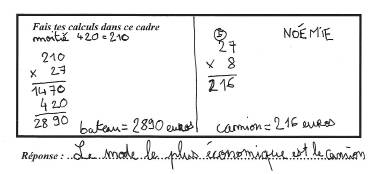 Fais tes calculs dans ce cadre
moitié 420 = 210
210
x 27
1470
420
2890
bateau = 2890 euros
NOÉMIE
27
x 8
216
camion = 216 euros
Réponse : Le mode le plus économique est le camion